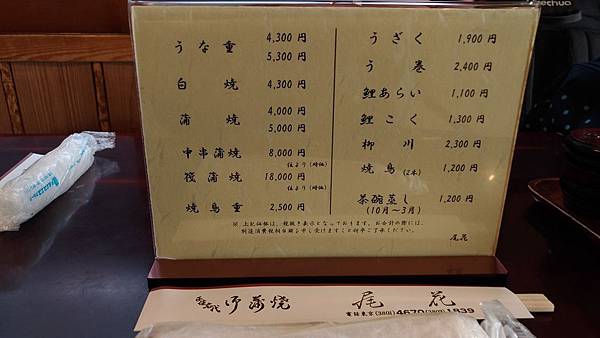 うな重 4,300 円
5,300 円
白焼 4,300 円
蒲焼 4,000 円
5,000 円
中串蒲焼 8,000 円
位より(時価)
筏蒲焼 18,000 円
位より(時価)
焼鳥重 2,500 円
うざく 1,900 円
う巻 2,400 円
鯉あらい 1,100 円
鯉こく 1,300 円
柳川 2,300 円
焼鳥(2本) 1,200 円
茶碗蒸し 1,200 円
(10月〜3月)
尾花
蒲焼 尾花
電話東京(3801)4670(3807)1839